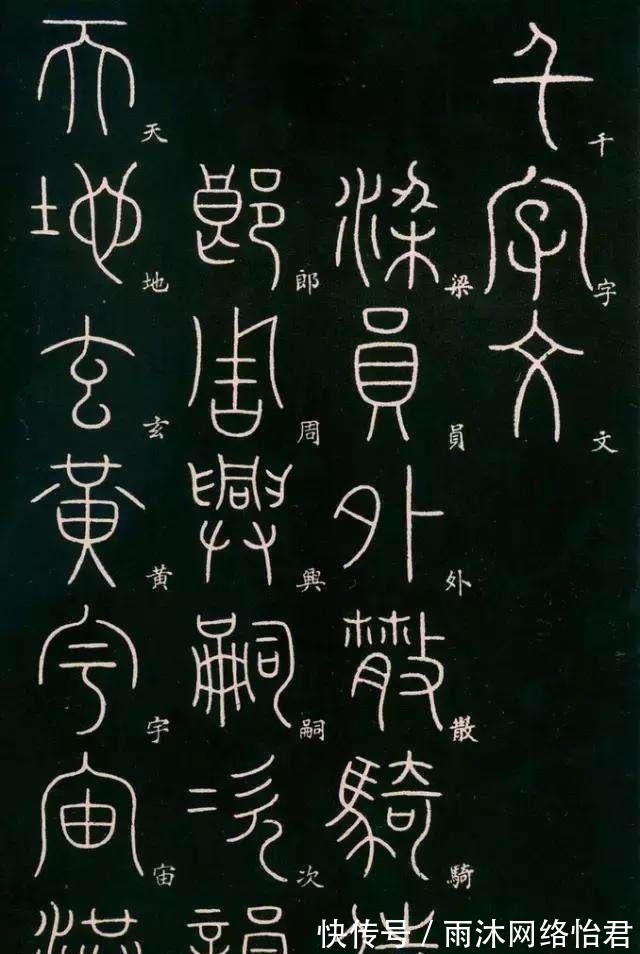 千字文
千字文
梁員外散騎
梁員外散騎
郎周興嗣次韻
郎周興嗣次
天地玄黃宇宙洪
天地玄黃宇宙
快传号 / 雨沐网络怡君